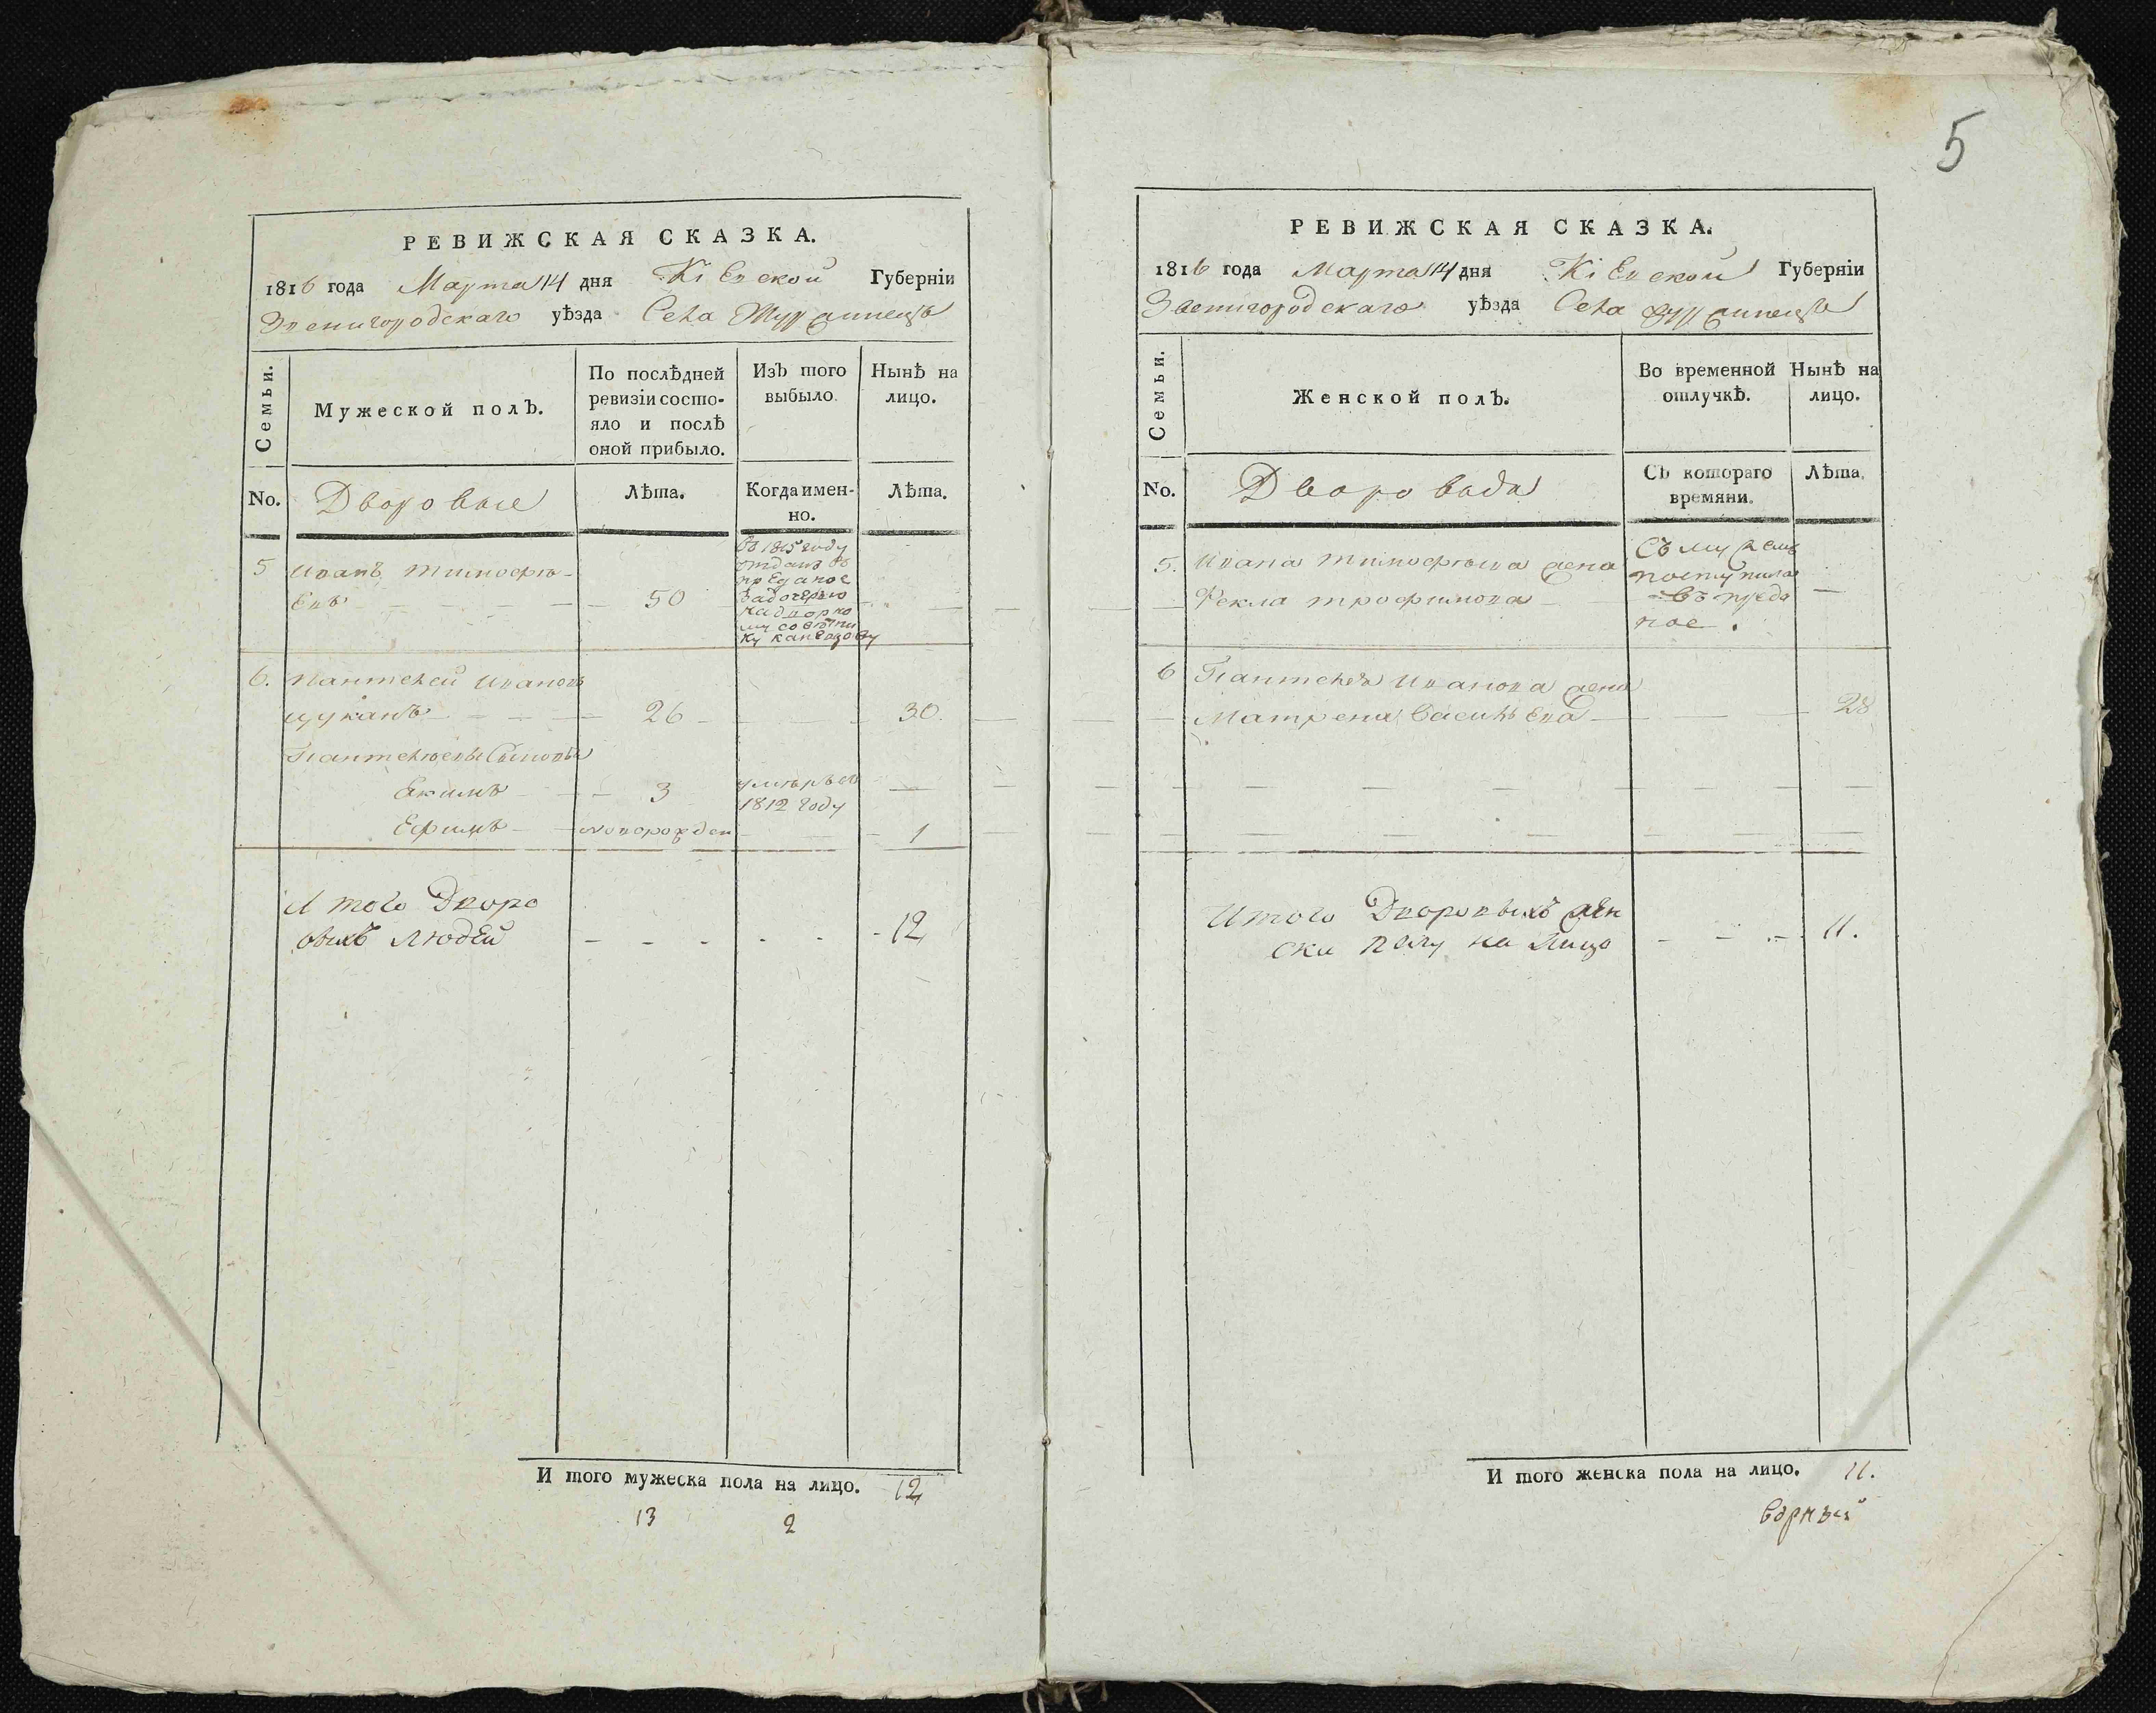 5
РЕВИЖСКАЯ СКАЗКА.
1816 года Марта 14 дня Кіевской Губерніи
Звенигородскаго уѣзда Села Журжинецъ
Семьи.
Мужеской полъ.
По послѣдней ревизіи состо-
яло и послѣ
оной прибыло.
Изъ того
выбыло.
Нынѣ на
лицо.
No.
Дворовые
Лѣта.
Когда имен-
но.
Лѣта.
5 Иванъ Тимофѣ-
евъ 50
Въ 1815 году
отданъ въ
преданое
за дочерью
надворно
му совѣтни
ку
6. Пантелей Ивановъ
Цуканъ 26 30.
Пантелѣевы Сыновья
Екимъ 3 умѣръ въ
1812 году
Ефимъ новорожден 1
И того Дворо
выхъ людей 12
И того мужеска пола на лицо. 12
13 2
РЕВИЖСКАЯ СКАЗКА.
1816 года Марта 14 дня Кіевской Губерніи
Звенигородскаго уѣзда Села Журжинецъ
Семьи.
Женской полъ.
Во временной
отлучкѣ.
Нынѣ на
лицо.
No.
Съ котораго
времяни.
Лѣта.
5. Ивана Тимофѣева жена
Фекла Трофимова
Съ мужемъ
поступила
въ преда
ное.
6 Пантелея Иванова жена
Матрена Васильева 28
Итого Дворовыхъ жен
ска полу на лицо 11.
И того женска пола на лицо. 11.